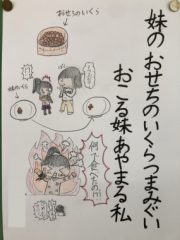 妹のおせちのいくらつまみぐい
おこる妹あやまる私
おせちのいくら
妹のいくら
何で食べたの!?